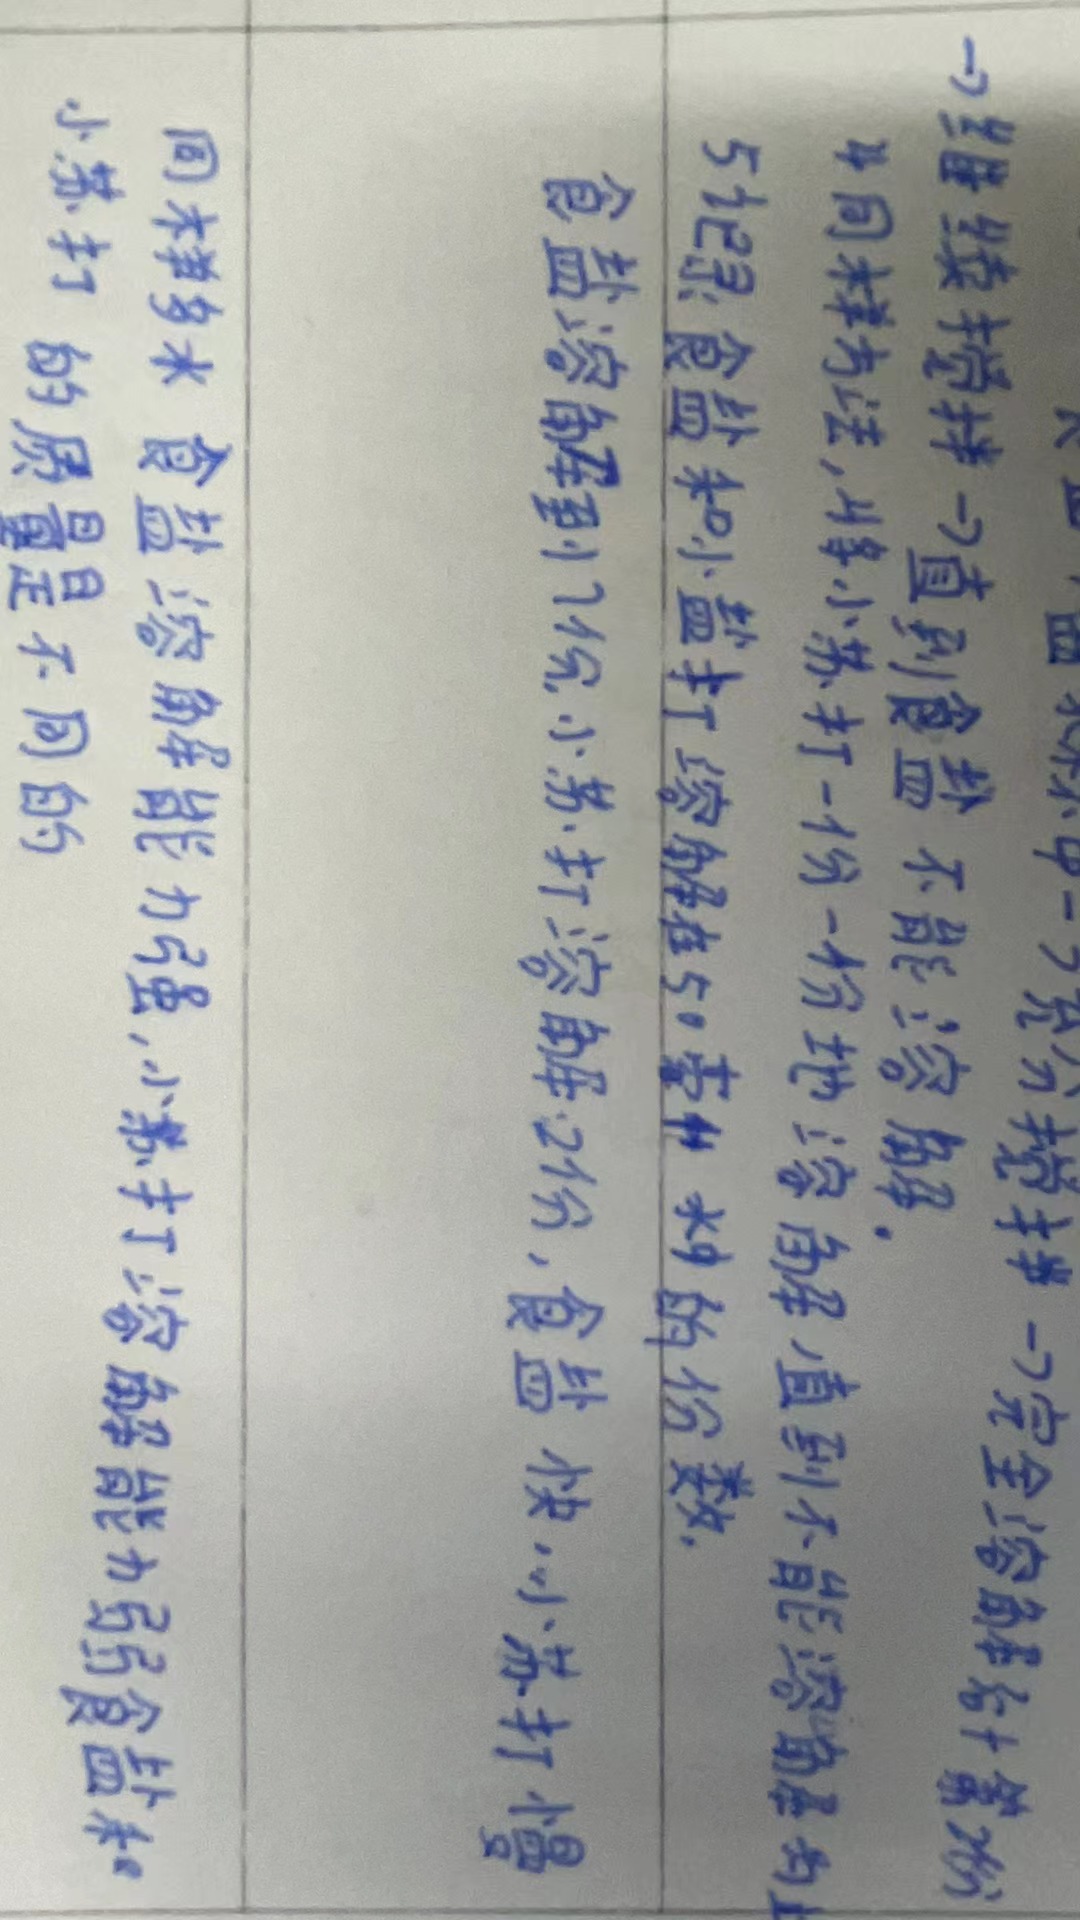 中→充分搅拌→完全溶解, 第2份
→继续搅拌→直到食盐不能溶解.
4同样方法,将小苏打一份一份地溶解,直到不能溶解为止
5记录食盐和小盐打溶解在50毫升水中的份数.
食盐溶解到7份,小苏打溶解2份,食盐快,小苏打慢
同样多水 食盐溶解能力强,小苏打溶解能力弱食盐和
小苏打的质量是不同的